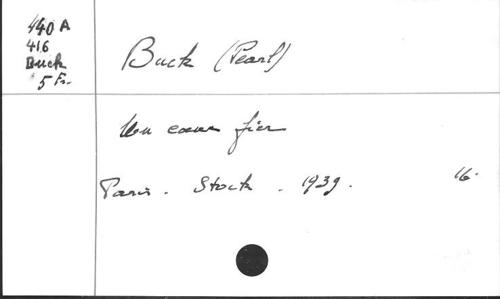 440 A
416
Buck
5 Fr.
Buck (Pearl)
Un coeur fier
Paris. Stock. 1939. 16.